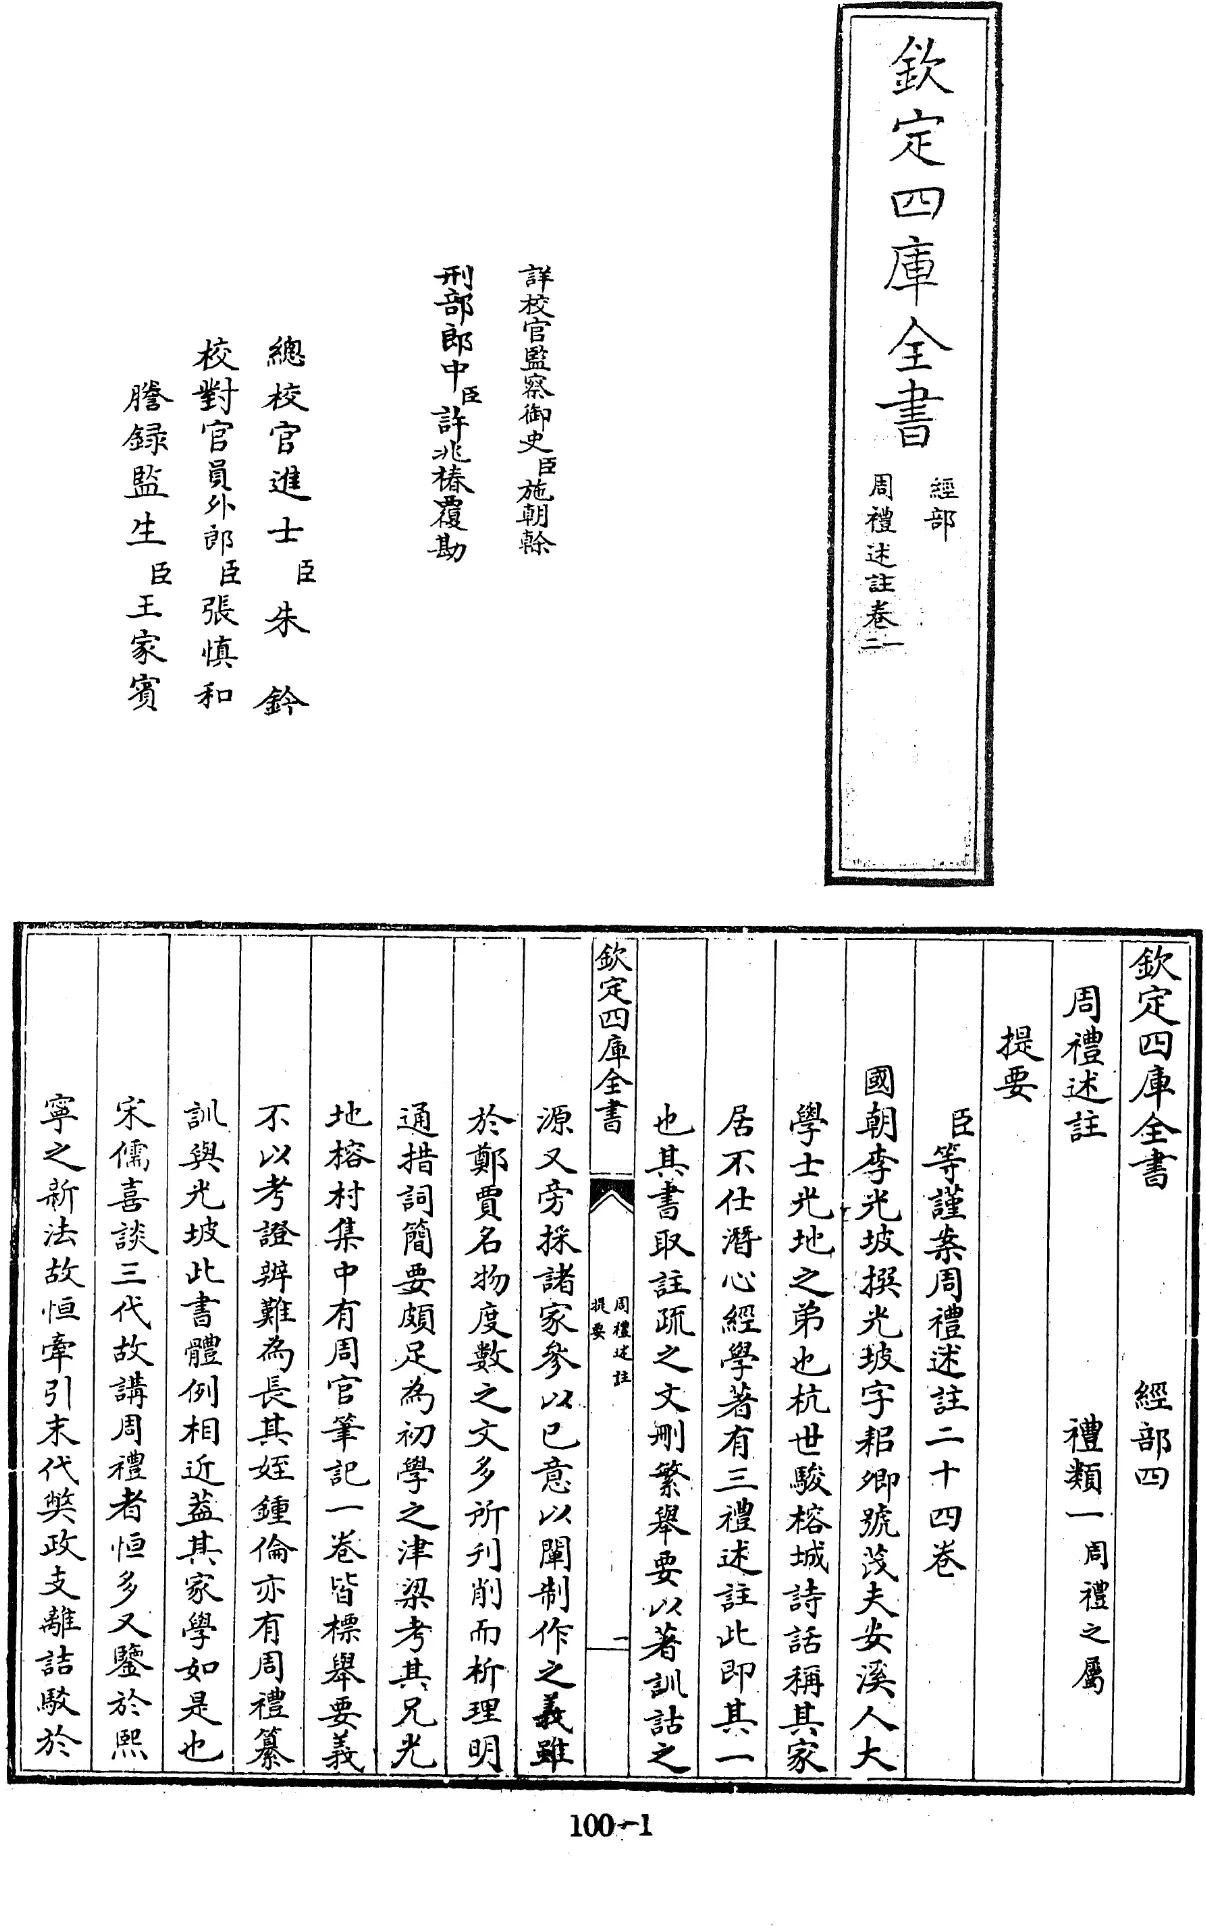 欽定四庫全書
經部
周禮述註卷一
二
詳校官監察御史臣施朝榦
刑部郎中臣許兆椿覆勘
總校官進士臣朱鈐
校對官員外郎臣張慎和
謄録監生臣王家賓
欽定四庫全書 經部四
周禮述註 禮類一周禮之屬
提要
臣等謹案周禮述註二十四卷
國朝李光坡撰光坡字耜卿號茂夫安溪人大
學士光地之弟也杭世駿榕城詩話稱其家
居不仕潛心經學著有三禮述註此即其一
也其書取註疏之文刪繁舉要以著訓詁之
欽定四庫全書
周禮述註
提要
一
源又旁採諸家參以已意以闡制作之義雖
於鄭賈名物度數之文多所刋削而析理明
通措詞簡要頗足為初學之津梁考其兄光
地榕村集中有周官筆記一卷皆標舉要義
不以考證辨難為長其姪鍾倫亦有周禮纂
訓與光坡此書體例相近葢其家學如是也
宋儒喜談三代故講周禮者恒多又鑒於熙
寧之新法故恒牽引末代獘政支離詰駁於
100-1